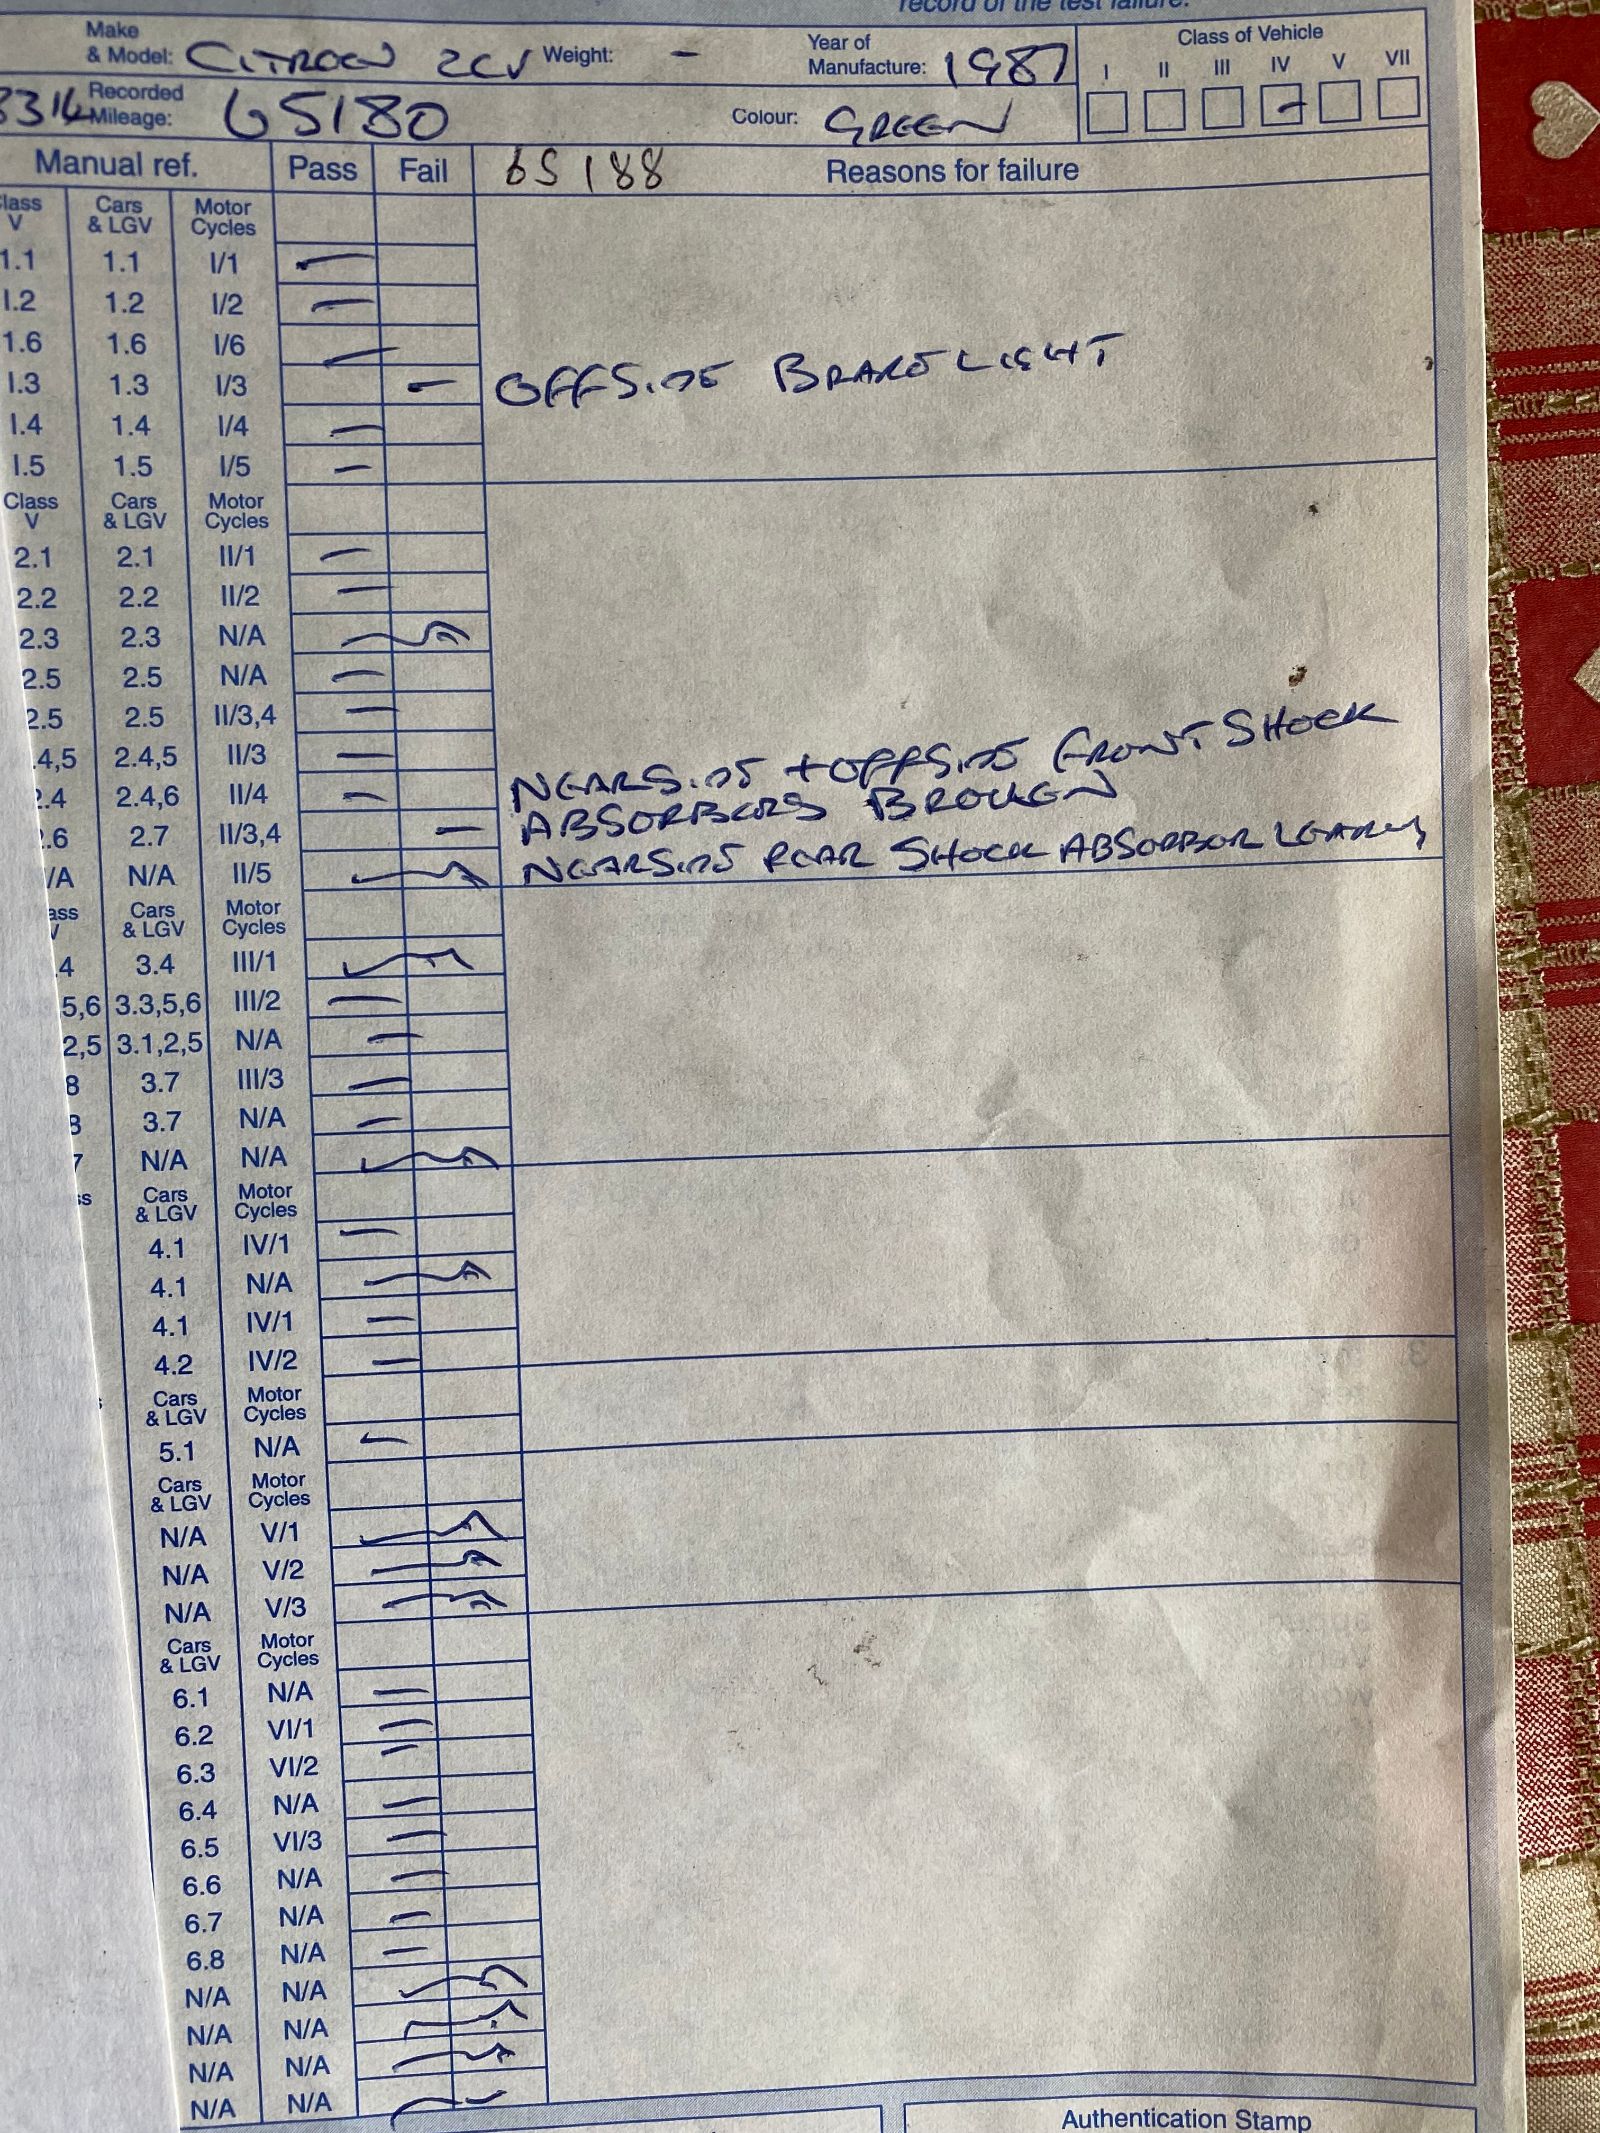 record of the test failure.
Make & Model: CITROEN 2CV Weight: - Year of Manufacture: 1987 Class of Vehicle
I II III IV V VII
3314 Recorded Mileage: 65180 Colour: GREEN
Manual ref. Pass Fail 65188 Reasons for failure
Class V Cars & LGV Motor Cycles
1.1 1.1 I/1
1.2 1.2 I/2
1.6 1.6 I/6
1.3 1.3 I/3 OFFSIDE BRAKE LIGHT
1.4 1.4 I/4
1.5 1.5 I/5
Class V Cars & LGV Motor Cycles
2.1 2.1 II/1
2.2 2.2 II/2
2.3 2.3 N/A
2.5 2.5 N/A
2.5 2.5 II/3,4
.4,5 2.4,5 II/3 NEARSIDE + OFFSIDE FRONT SHOCK
2.4 2.4,6 II/4 ABSORBERS BROKEN
.6 2.7 II/3,4 NEARSIDE REAR SHOCK ABSORBOR LEAKING
/A N/A II/5
ass V Cars & LGV Motor Cycles
.4 3.4 III/1
5,6 3.3,5,6 III/2
2,5 3.1,2,5 N/A
8 3.7 III/3
8 3.7 N/A
7 N/A N/A
ss Cars & LGV Motor Cycles
4.1 IV/1
4.1 N/A
4.1 IV/1
4.2 IV/2
Cars & LGV Motor Cycles
5.1 N/A
Cars & LGV Motor Cycles
N/A V/1
N/A V/2
N/A V/3
Cars & LGV Motor Cycles
6.1 N/A
6.2 VI/1
6.3 VI/2
6.4 N/A
6.5 VI/3
6.6 N/A
6.7 N/A
6.8 N/A
N/A N/A
N/A N/A
N/A N/A
N/A N/A
Authentication Stamp